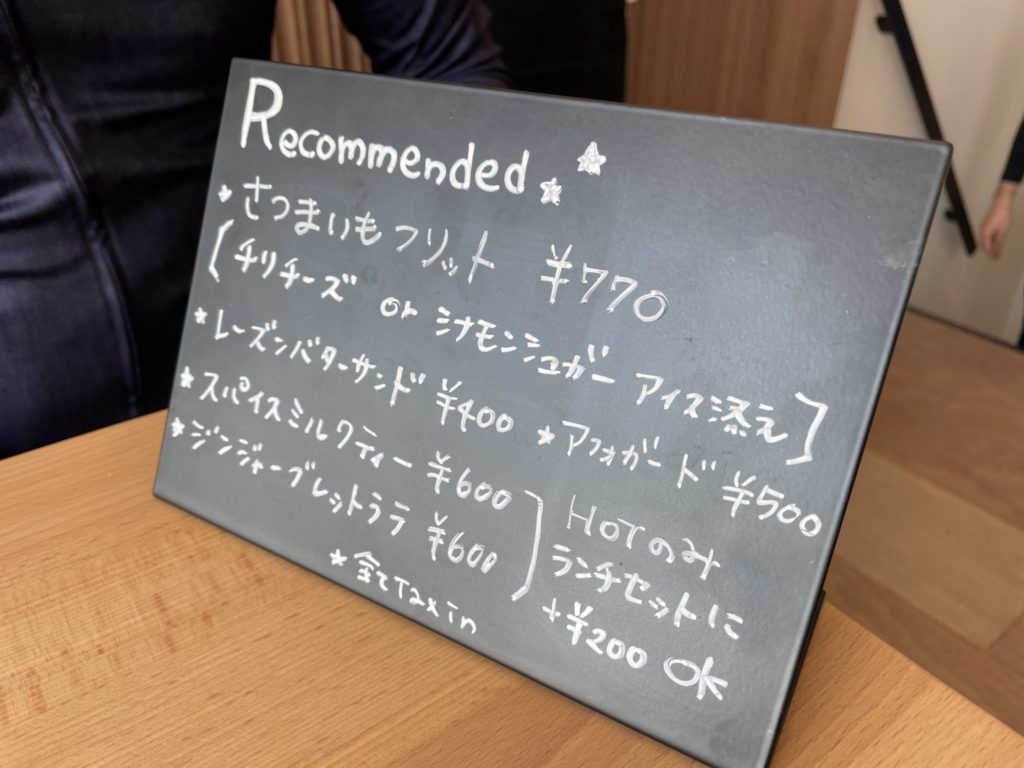 Recommended ★★
★さつまいもフリット ¥770
[チリチーズ or シナモンシュガー アイス添え]
★レーズンバターサンド ¥400 ★アフォガード ¥500
★スパイスミルクティー ¥600
★ジンジャーブレットラテ ¥600
HOTのみ
ランチセットに
+¥200 OK
★全てTaxin